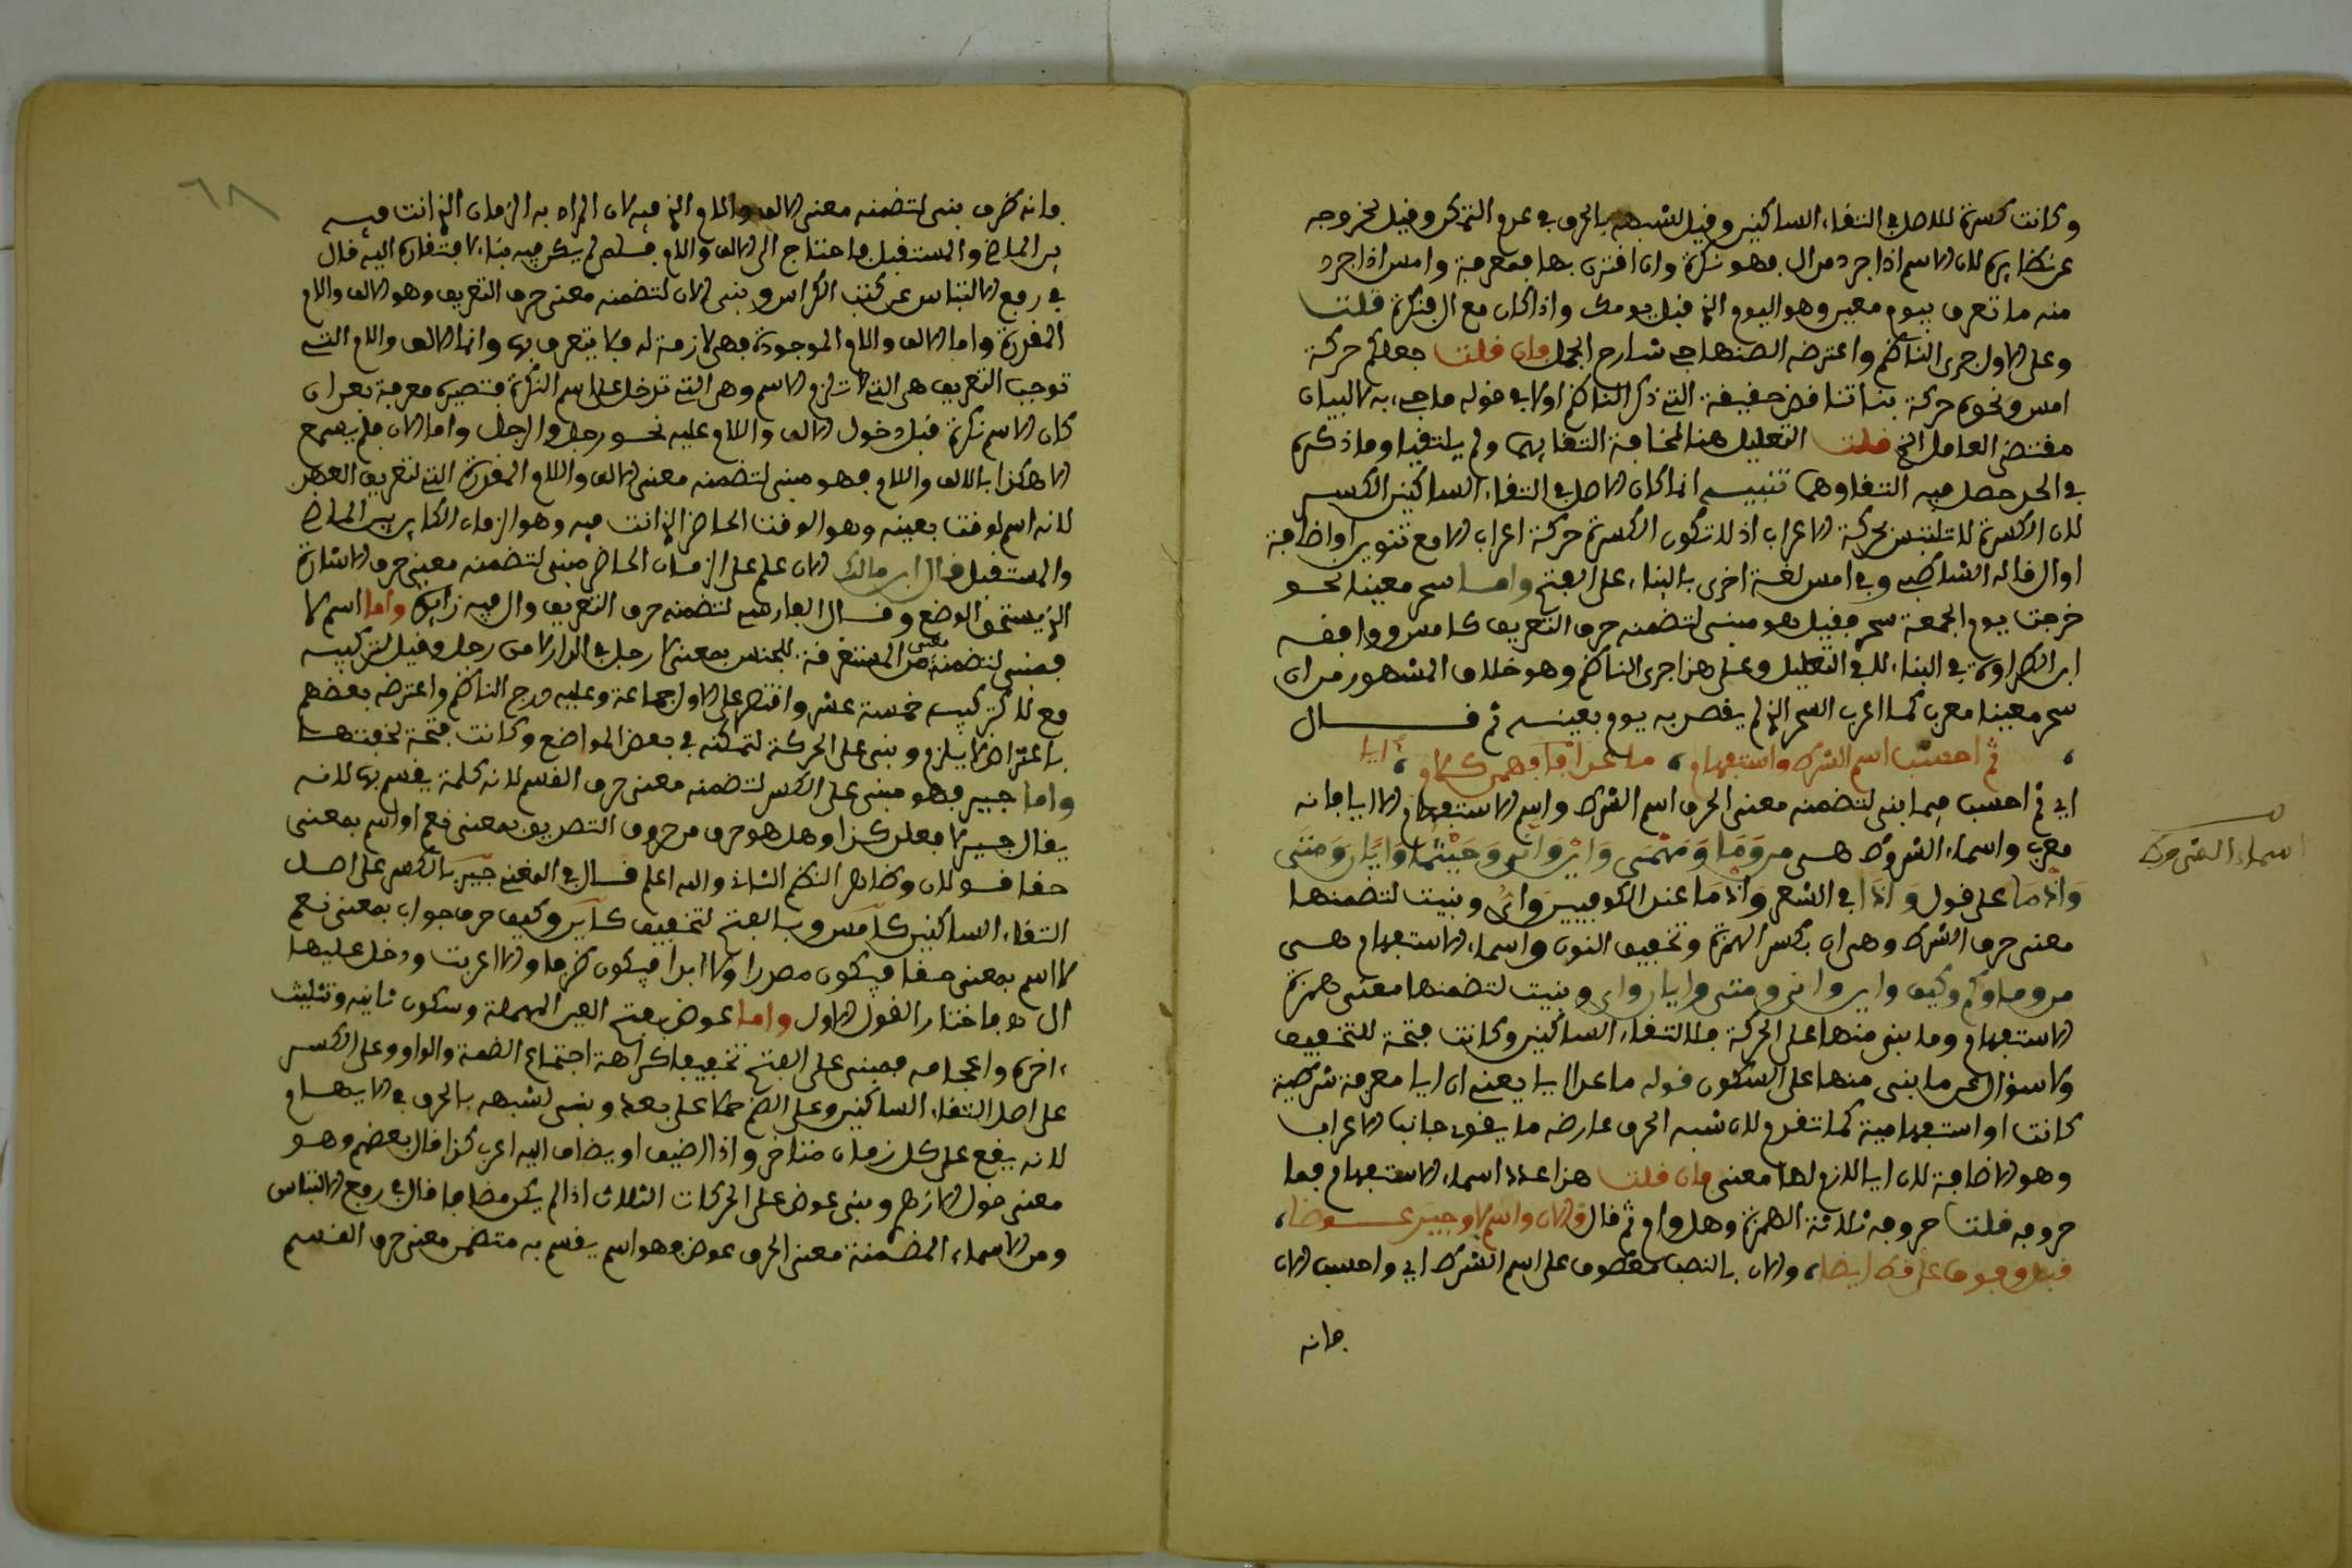 وكانت كسرة للاصل في التقاء الساكنين وقيل لشبهه بالحرف في عدم التمكن وقيل لخروجه
عن نظائره لان الاسم اذا جرد من ال فهو نكرة وان اقترن بها فمعرفة وامس اذا جرد
منه ما تعرف بيوم معين وهو اليوم الذي قبل يومك واذا كان مع ال فنكرة قلت
وعلى الاول جرى الناظم واعترضه الصنهاجي شارح الجمل فان قلت جعلكم حركة
امس ونحوه حركة بنا تناقض حقيقة التي ذكر الناظم اولا في قوله ما جيء به لا لبيان
مقتضى العامل الخ قلت التعليل هنا لمخافة التقائهما ولم يلتقيا وما ذكره
في الحد حصل فيه التقاوهما تنبيه انما كان الاصل في التقاء الساكنين الكسر
لان الكسرة لا تلتبس بحركة الاعراب اذ لا تكون الكسرة حركة اعراب الا مع تنوين او اضافة
او ال قاله الشاطبي وفي امس لغة اخرى بالبناء على الفتح واما سحر معينا نحو
خرجت يوم الجمعة سحر فقيل هو مبني لتضمنه حرف التعريف كامس ووافقه
ابن الطراوة في البناء لا في التعليل وعلى هذا جرى الناظم وهو خلاف المشهور من ان
سحر معينا معرب كما اعرب السحر الذي لم يقصد به يوم بعينه ثم قال
ثم احسب اسم الشرط واستفهام ، ما عدا ايا فهمن كلام ، ايا
اي ثم احسب فيما بني لتضمنه معنى الحرف اسم الشرط واسم الاستفهام الا ايا فانه
معرب واسماء الشروط هي من وما ومهمى واين وانى وحيثما وايان ومتى
واذما على قول واذا في الشعر واذما عند الكوفيين واي وبنيت لتضمنها
معنى حرف الشرط وهو ان بكسر الهمزة وتخفيف النون واسماء الاستفهام هي
من وما وكم وكيف واين وانى ومتى وايان واي وبنيت لتضمنها معنى همزة
الاستفهام وما بني منها على الحركة فلالتقاء الساكنين وكانت فتحة للتخفيف
ولا سؤال عن ما بني منها على السكون قوله ما عدا ايا يعني ان ايا معرفة شرطية
كانت او استفهامية كما تقدم لان شبه الحرف عارضه ما يقوي جانب الاعراب
وهو الاضافة لان ايا لازم لها معنى فان قلت هذا عدد اسماء الاستفهام فما
حروفه قلت حروفه ثلاثة الهمزة وهل وام ثم قال والان واسم لا وجير عوضا،
قبل وفوق عل قط ايضا، والان بالنصب معطوف على اسم الشرط اي واحسب الان
فانه
اسماء الشروط
٦٨
فانه ظرف بني لتضمنه معنى الالف واللام الذي فيه لان المراد به الزمان الذي انت فيه
بين الماضي والمستقبل فاحتاج الى الالف واللام فلم لم يكن فيه بناء لافتقاره اليه قال
في رفع الالتباس عن كتب الكراس وبني الان لتضمنه معنى حرف التعريف وهو الالف واللام
المقدرة واما الالف واللام الموجودة فهي لازمة له فلا يتعرف بها وانما الالف واللام التي
توجب التعريف هي التي لا تلزم الاسم وهي التي تدخل على اسم النكرة فتصيره معرفة بعد ان
كان الاسم نكرة قبل دخول الالف واللام عليه نحو رجل والرجل واما الان فلم يسمع
الا هكذا بالالف واللام فهو مبني لتضمنه معنى الالف واللام المقدرة التي لتعريف العهد
لانه اسم لوقت بعينه وهو الوقت الحاضر الذي انت فيه وهو الزمان الكاين بين الماضي
والمستقبل قال ابن مالك الان علم على الزمان الحاضر مبني لتضمنه معنى حرف الاشارة
الذي يستحق الوضع وقال الفارسي لتضمنه حرف التعريف وال فيه زائدة واما اسم لا
فمبني لتضمنه معنى من المستغرقة للجنس بمعنى لا رجل في الدار لا من رجل وقيل لتركيبه
مع لا كتركيب خمسة عشر واقتصر على الاول جماعة وعليه درج الناظم واعترضه بعضهم
باعتراض لا يلزم وبني على الحركة لتمكنه في بعض المواضع وكانت فتحة لخفتها
واما جير فهو مبني على الكسر لتضمنه معنى حرف القسم لانه كلمة يقسم بها لانه
يقال جير لا فعلن كذا وهل هو حرف من حروف التصديق بمعنى نعم او اسم بمعنى
حقا قولان وظاهر النظم الثاني والله اعلم قال في المغني جير بالكسر على اصل
التقاء الساكنين كامس وبالفتح لتخفيف كاين وكيف حرف جواب بمعنى نعم
لا اسم بمعنى حقا فيكون مصدرا ولا ابدا فيكون ظرفا والا اعربت ودخل عليها
ال ه فاختار القول الاول واما عوض بفتح العين المهملة وسكون ثانيه وتثليث
اخره واعجامه فمبني على الفتح تخفيفا كراهة اجتماع الضمة والواو وعلى الكسر
على اصل التقاء الساكنين وعلى الضم حملا على بعد وبني لشبهه بالحرف في الابهام
لانه يقع على كل زمان متاخر واذا اضيف او يضاف اليه اعرب كذا قال بعضهم وهو
معنى قول الازهري وبني عوض على الحركات الثلاث اذا لم يكن مضافا قال في رفع الالتباس
ومن الاسماء المضمنة معنى الحرف عوض وهو اسم يقسم به متضمن معنى حرف القسم